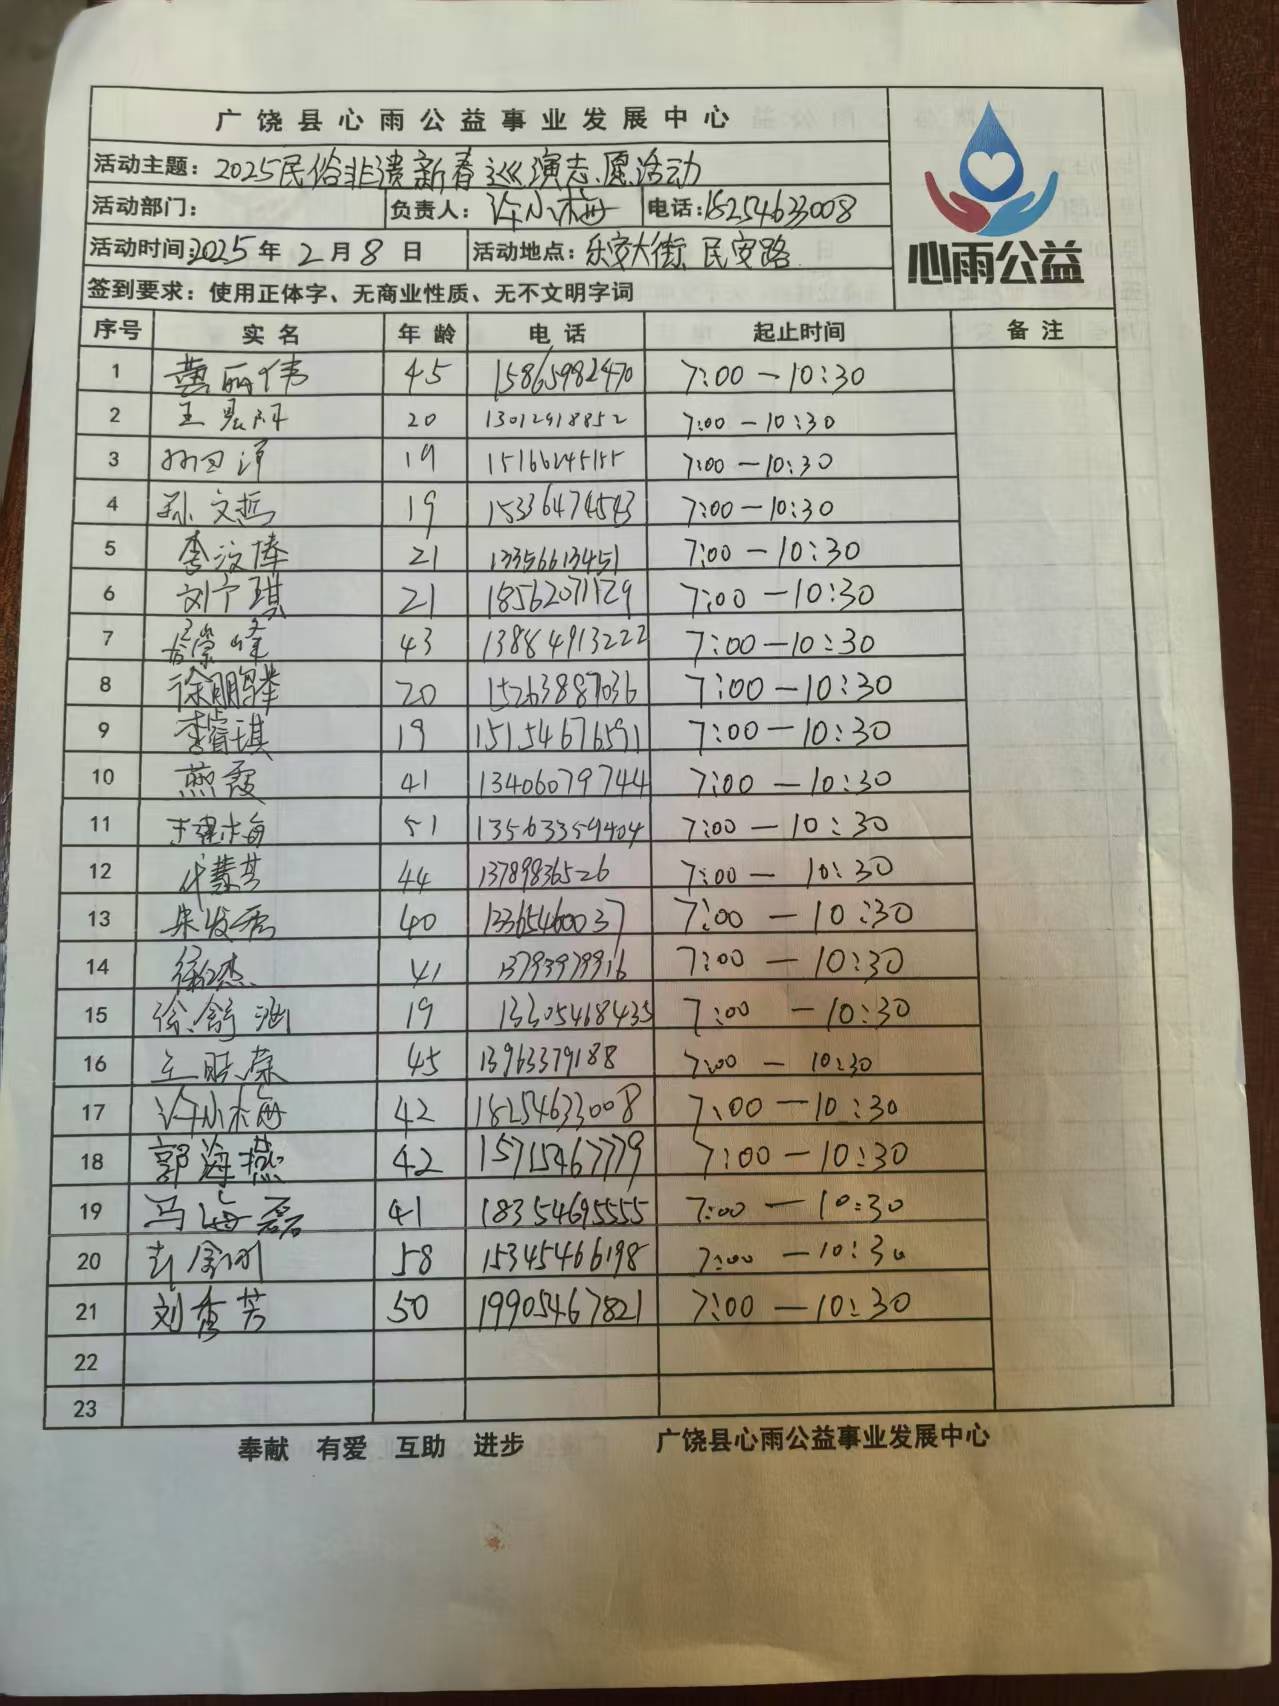 广饶县心雨公益事业发展中心
心雨公益
活动主题：2025民俗非遗新春巡演志愿活动
活动部门： 负责人：许小梅 电话：18254633008
活动时间：2025年2月8日 活动地点：乐安大街 民安路
签到要求：使用正体字、无商业性质、无不文明字词
序号 实名 年龄 电话 起止时间 备注
1 黄丽伟 45 15865982470 7:00—10:30
2 王 20 13012918852 7:00—10:30
3 19 7:00—10:30
4 孙文哲 19 15336474543 7:00—10:30
5 李汶烽 21 13356613451 7:00—10:30
6 刘宁琪 21 18562071129 7:00—10:30
7 43 13884913222 7:00—10:30
8 徐鹏举 20 15263887036 7:00—10:30
9 李睿琪 19 15154676591 7:00—10:30
10 燕霞 41 13406079744 7:00—10:30
11 51 13563359404 7:00—10:30
12 代慧芳 44 13789836526 7:00—10:30
13 朱发秀 40 13365460037 7:00—10:30
14 徐杰 41 13793979916 7:00—10:30
15 徐舒涵 19 13305468435 7:00—10:30
16 王晓荣 45 13963379188 7:00—10:30
17 许小梅 42 18254633008 7:00—10:30
18 郭海燕 42 15715467779 7:00—10:30
19 马海磊 41 18354695555 7:00—10:30
20 58 15345466198 7:00—10:30
21 刘秀芳 50 19905467821 7:00—10:30
22
23
奉献 有爱 互助 进步 广饶县心雨公益事业发展中心